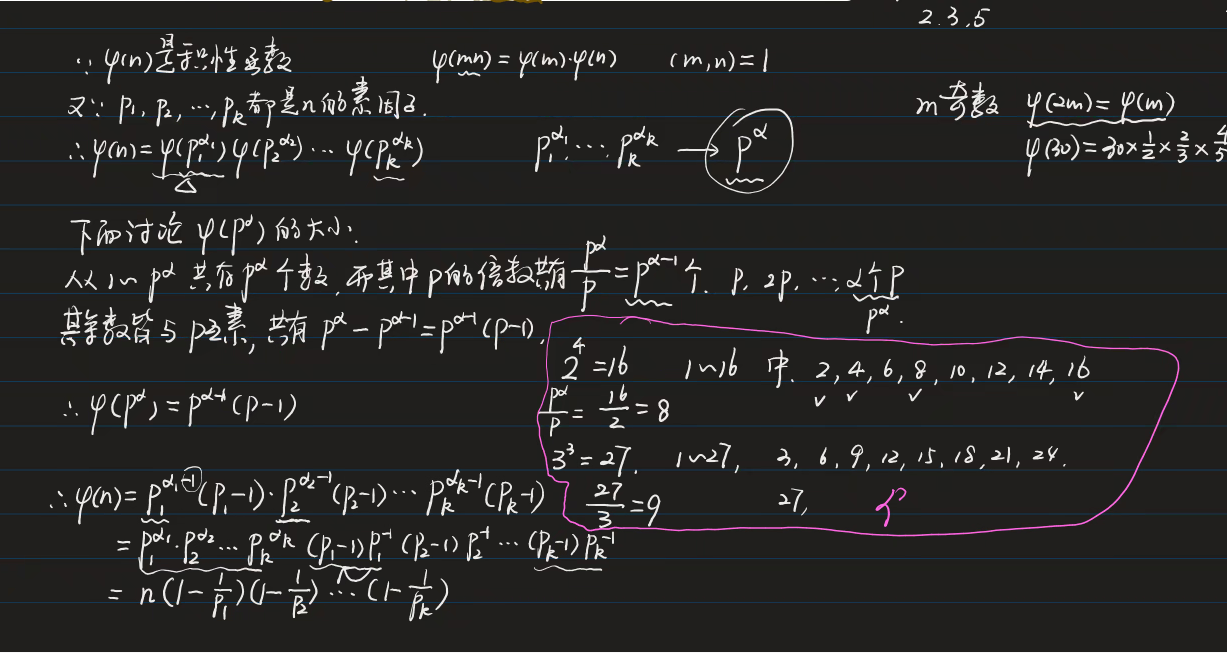 2.3.5
∵ φ(n)是积性函数 φ(mn)=φ(m)·φ(n) (m,n)=1
又∵ p₁, p₂, …, pₖ都是n的素因子.
m奇数 φ(2m)=φ(m)
φ(30)=30×1/2×2/3×4/5
∴ φ(n)=φ(p₁^α₁)φ(p₂^α₂)… φ(pₖ^αₖ) p₁^α₁ … pₖ^αₖ → p^α
下面讨论 φ(p^α)的大小.
从1~p^α 共有p^α个数,而其中p的倍数共有 p^α/p = p^(α-1)个. p, 2p, … α个p
p^α.
其余数皆与p互素, 共有 p^α - p^(α-1) = p^(α-1)(p-1),
∴ φ(p^α)=p^(α-1)(p-1)
2⁴=16 1~16 中. 2, 4, 6, 8, 10, 12, 14, 16
p^α/p = 16/2 = 8
3³=27. 1~27, 3, 6, 9, 12, 15, 18, 21, 24.
27/3=9 27,
∴ φ(n)=p₁^(α₁-1)(p₁-1)·p₂^(α₂-1)(p₂-1)… pₖ^(αₖ-1)(pₖ-1)
= p₁^α₁·p₂^α₂… pₖ^αₖ (p₁-1)p₁⁻¹ (p₂-1)p₂⁻¹ … (pₖ-1)pₖ⁻¹
= n(1-1/p₁)(1-1/p₂) … (1-1/pₖ)